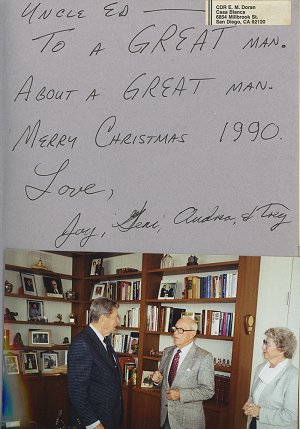 CDR E. M. Doran
Casa Blanca
6854 Millbrook St.
San Diego, CA 92120
UNCLE ED —
TO A GREAT MAN.
ABOUT A GREAT MAN.
MERRY CHRISTMAS 1990.
Love,
Jay, Geni, Andrea, & Trey